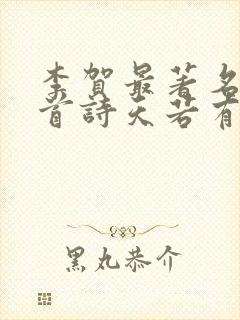 李賀最著名
首詩天若有
黑丸恭介